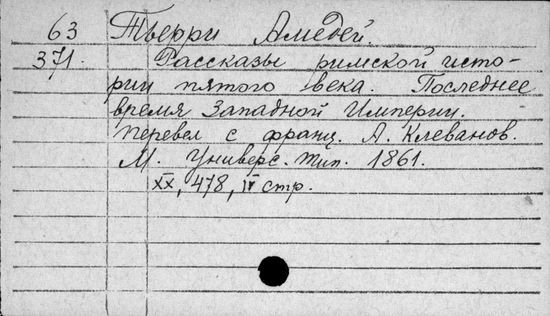 63 Тьерри Амедей.
371. Рассказы римской исто-
рии пятого века. Последнее
время Западной Империи.
Перевел с франц. А. Клеванов.
М. Универс. тип. 1861.
XX, 478, IV стр.